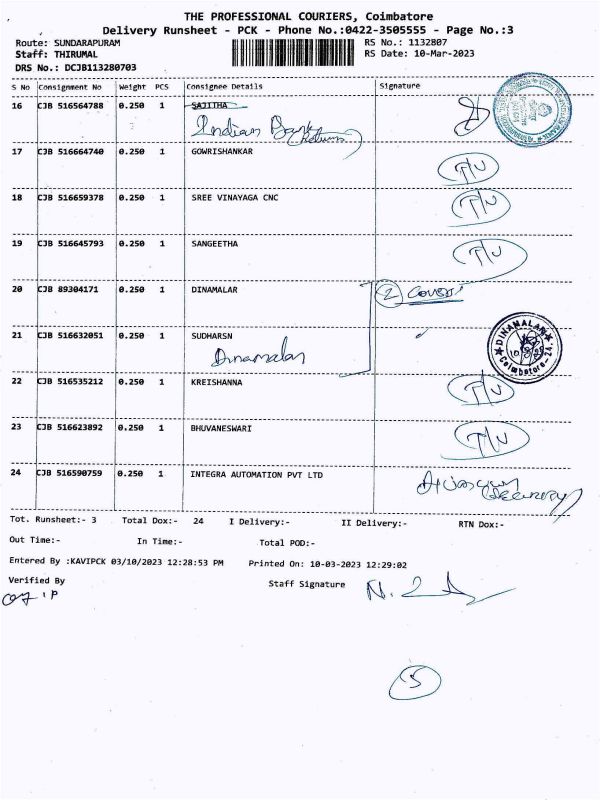 THE PROFESSIONAL COURIERS, Coimbatore
Delivery Runsheet - PCK - Phone No.:0422-3505555 - Page No.:3
Route: SUNDARAPURAM
RS No.: 1132807
Staff: THIRUMAL
RS Date: 10-Mar-2023
DRS No.: DCJB113280703
S No Consignment No Weight PCS Consignee Details Signature
16 CJB 516564788 0.250 1 SAJITHA
Indian Bank
(Return)
17 CJB 516664740 0.250 1 GOWRISHANKAR T/U
18 CJB 516659378 0.250 1 SREE VINAYAGA CNC T/U
19 CJB 516645793 0.250 1 SANGEETHA T/U
20 CJB 89304171 0.250 1 DINAMALAR 2 Covers
21 CJB 516632051 0.250 1 SUDHARSN
Dinamalar
DINAMALAR
Coimbatore-24
22 CJB 516535212 0.250 1 KREISHANNA T/U
23 CJB 516623892 0.250 1 BHUVANESWARI T/U
24 CJB 516590759 0.250 1 INTEGRA AUTOMATION PVT LTD
Security
Tot. Runsheet:- 3 Total Dox:- 24 I Delivery:- II Delivery:- RTN Dox:-
Out Time:- In Time:- Total POD:-
Entered By :KAVIPCK 03/10/2023 12:28:53 PM Printed On: 10-03-2023 12:29:02
Verified By Staff Signature
5